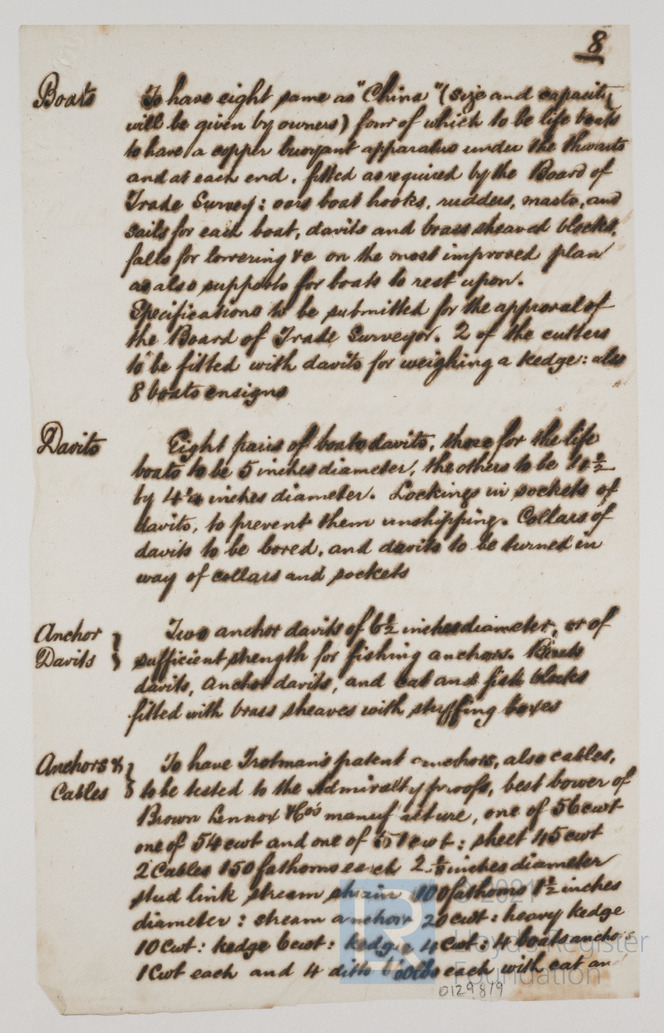 8
Boats To have eight same as "China" (size and capacity
will be given by owners) four of which to be life boats
to have a copper buoyant apparatus under the thwarts
and at each end, fitted as required by the Board of
Trade Survey: oars boat hooks, rudders, masts, and
sails for each boat, davits and brass sheaved blocks,
falls for lowering &c on the most improved plan
as also supports for boats to rest upon.
Specifications to be submitted for the approval of
the Board of Trade Surveyor. 2 of the cutters
to be fitted with davits for weighing a kedge: also
8 boats ensigns
Davits Eight pairs of boats davits, those for the life
boats to be 5 inches diameter, the others to be
by inches diameter. Lockings in sockets of
davits, to prevent them unshipping. Collars of
davits to be bored, and davits to be turned in
way of collars and sockets
Anchor Two anchor davits of 6½ inches diameter, or of
Davits } sufficient strength for fishing anchors.
davits, anchor davits, and cat and fish blocks
fitted with brass sheaves with stuffing boxes
Anchors & To have Trotman's patent anchors, also cables,
Cables } to be tested to the Admiralty proofs, best bower of
Brown Lennox & Co's manufacture, one of 56 cwt
one of 54 cwt and one of 51 cwt: sheet 45 cwt
2 Cables 150 fathoms each inches diameter
stud link stream chain 100 fathoms 1½ inches
diameter: stream anchor 20 cwt: heavy kedge
10 cwt: kedge 6 cwt: kedge 4 cwt: 4 boats anchors
1 Cwt each and 4 ditto lbs each with cat and
0129879
2021
Lloyd's Register
Foundation